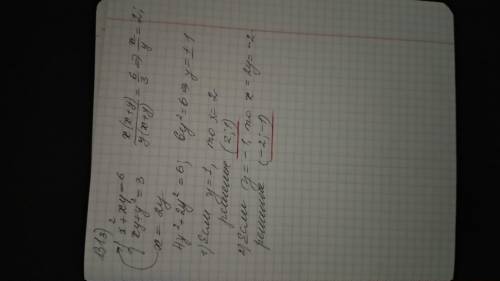 В13)
{ x² + xy = 6
xy + y² = 3
x(x+y)/y(x+y) = 6/3 ⇒ x/y = 2;
x = 2y
4y² + 2y² = 6; 6y² = 6 ⇒ y = ±1
1) Если y = 1, то x = 2
решение (2; 1)
2) Если y = -1, то x = 2y = -2
решение (-2; -1)